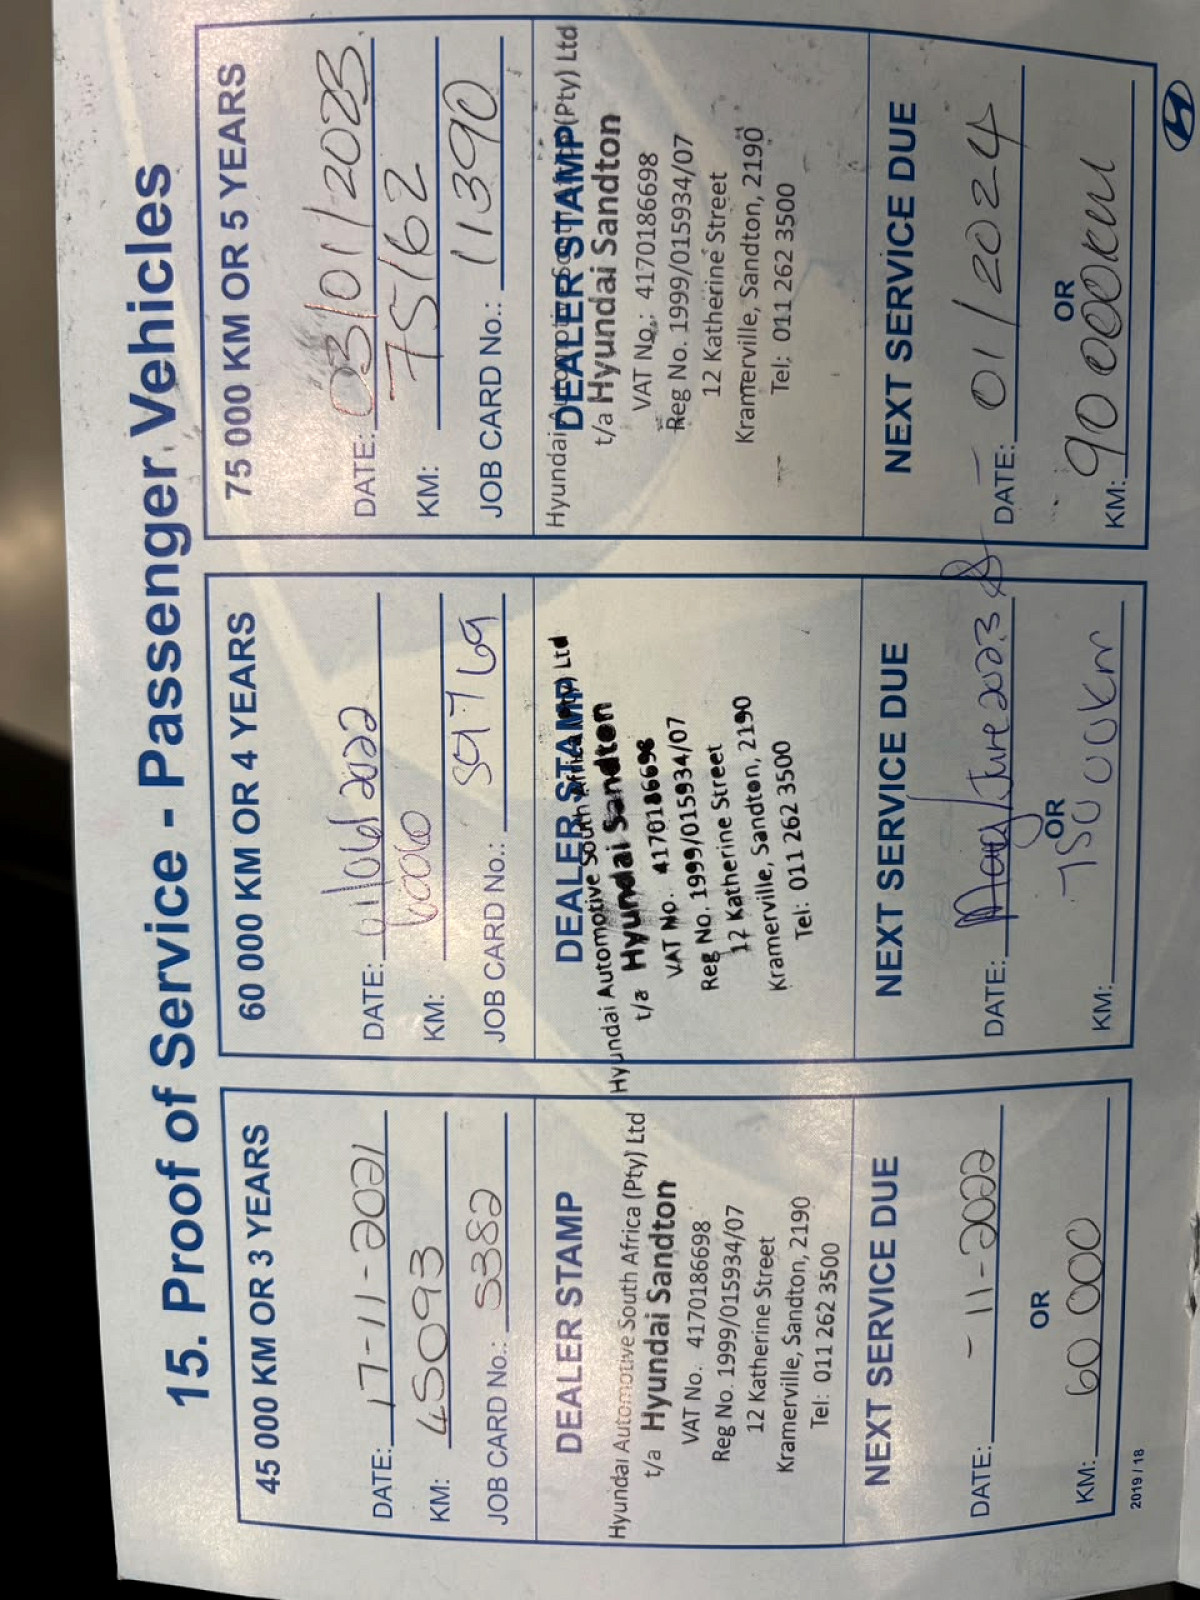 15. Proof of Service - Passenger Vehicles
45 000 KM OR 3 YEARS
DATE: 17-11-2021
KM: 45093
JOB CARD No.: 5382
DEALER STAMP
Hyundai Automotive South Africa (Pty) Ltd
t/a Hyundai Sandton
VAT No. 4170186698
Reg No. 1999/015934/07
12 Katherine Street
Kramerville, Sandton, 2190
Tel: 011 262 3500
NEXT SERVICE DUE
DATE: - 11-2022
OR
KM: 60 000
2019 / 18
60 000 KM OR 4 YEARS
DATE: /06/2022
KM:
JOB CARD No.:
DEALER STAMP
Hyundai Automotive South Africa (Pty) Ltd
t/a Hyundai Sandton
VAT No. 4170186698
Reg No. 1999/015934/07
12 Katherine Street
Kramerville, Sandton, 2190
Tel: 011 262 3500
NEXT SERVICE DUE
DATE: /June 2023
OR
KM: 75000km
75 000 KM OR 5 YEARS
DATE: 03/01/2023
KM: 75162
JOB CARD No.: 11390
DEALER STAMP
Hyundai Automotive South (Pty) Ltd
t/a Hyundai Sandton
VAT No.: 4170186698
Reg No. 1999/015934/07
12 Katherine Street
Kramerville, Sandton, 2190
Tel: 011 262 3500
NEXT SERVICE DUE
DATE: - 01/2024
OR
KM: 90 000km